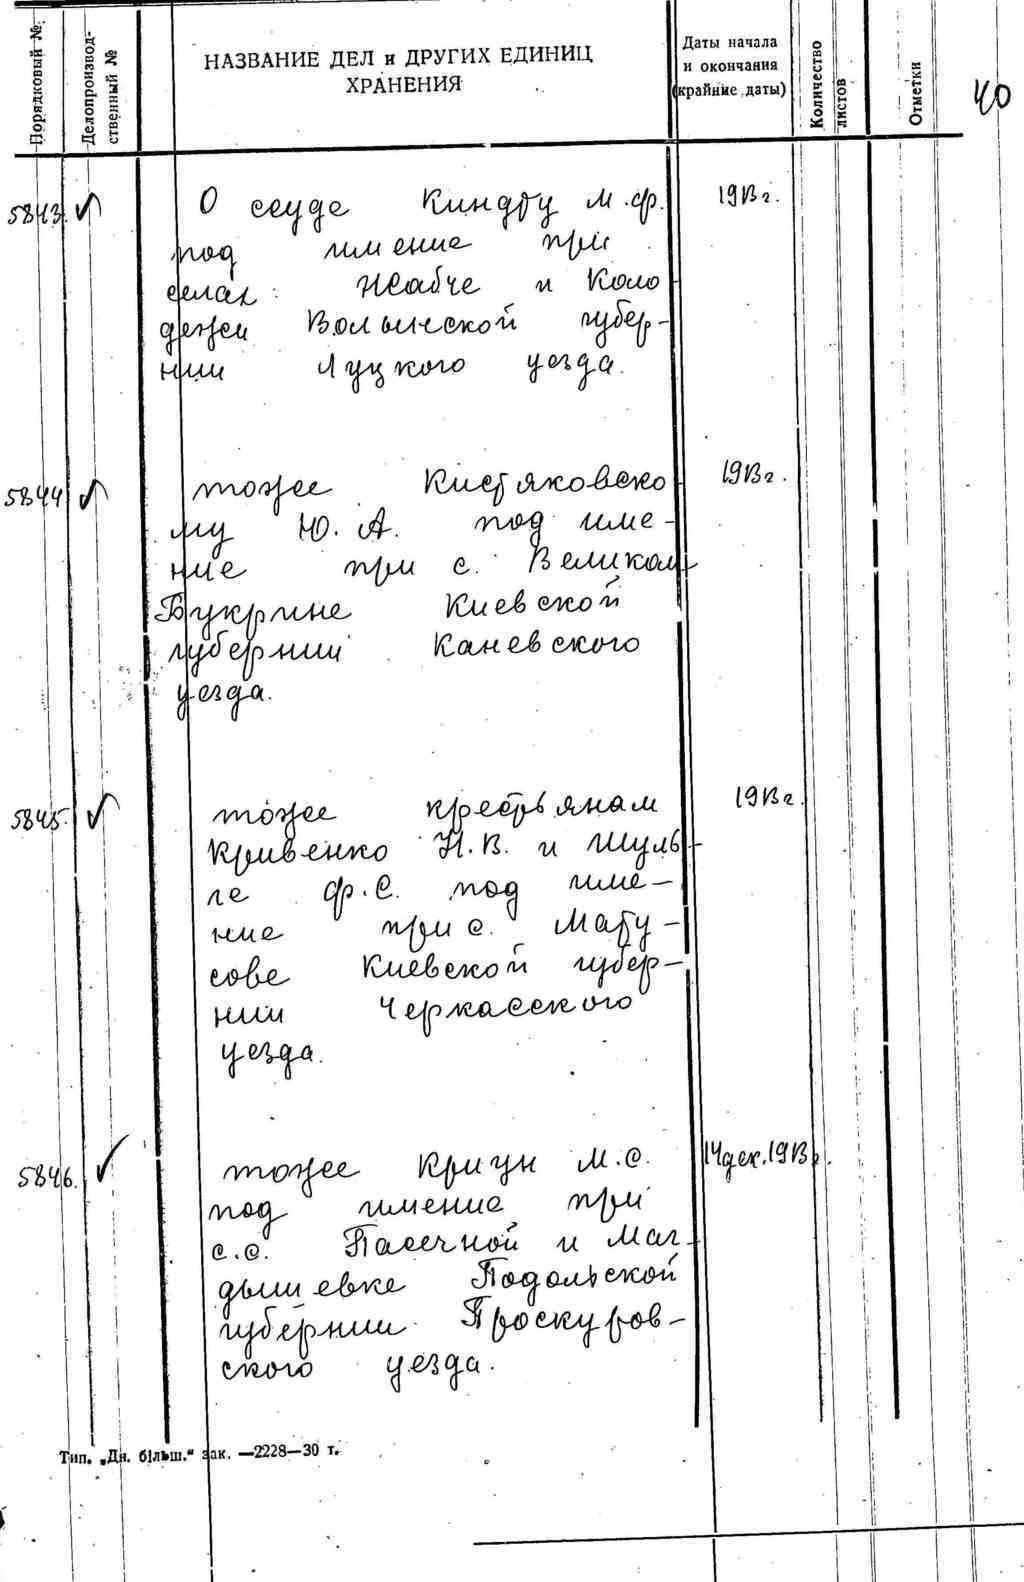 Порядковый №
Делопроизвод-
ственный №
НАЗВАНИЕ ДЕЛ и ДРУГИХ ЕДИНИЦ
ХРАНЕНИЯ
Даты начала
и окончания
(крайние даты)
Количество
листов
Отметки
40
5843. ✓ О ссуде Киндту М.Ф. 1913 г.
под имение при
селах: Жабче и Коло
дежи Волынской губер-
нии Луцкого уезда.
5844 ✓ тоже Кистяковско 1913 г.
му Ю. А. под име-
ние при с. Великом
Букрине Киевской
губернии Каневского
уезда.
5845. ✓ тоже крестьянам 1913 г.
Кривенко Н.В. и Шуль
ге Ф.С. под име-
ние при с. Мату-
сове Киевской губер-
нии Черкасского
уезда.
5846. ✓ тоже Кригун М.С. 14 дек. 1913 г.
под имение при
с.с. Пасечной и Маг-
дышевке Подольской
губернии Проскуров-
ского уезда.
Тип. „Дн. більш.“ зак. —2228—30 т.